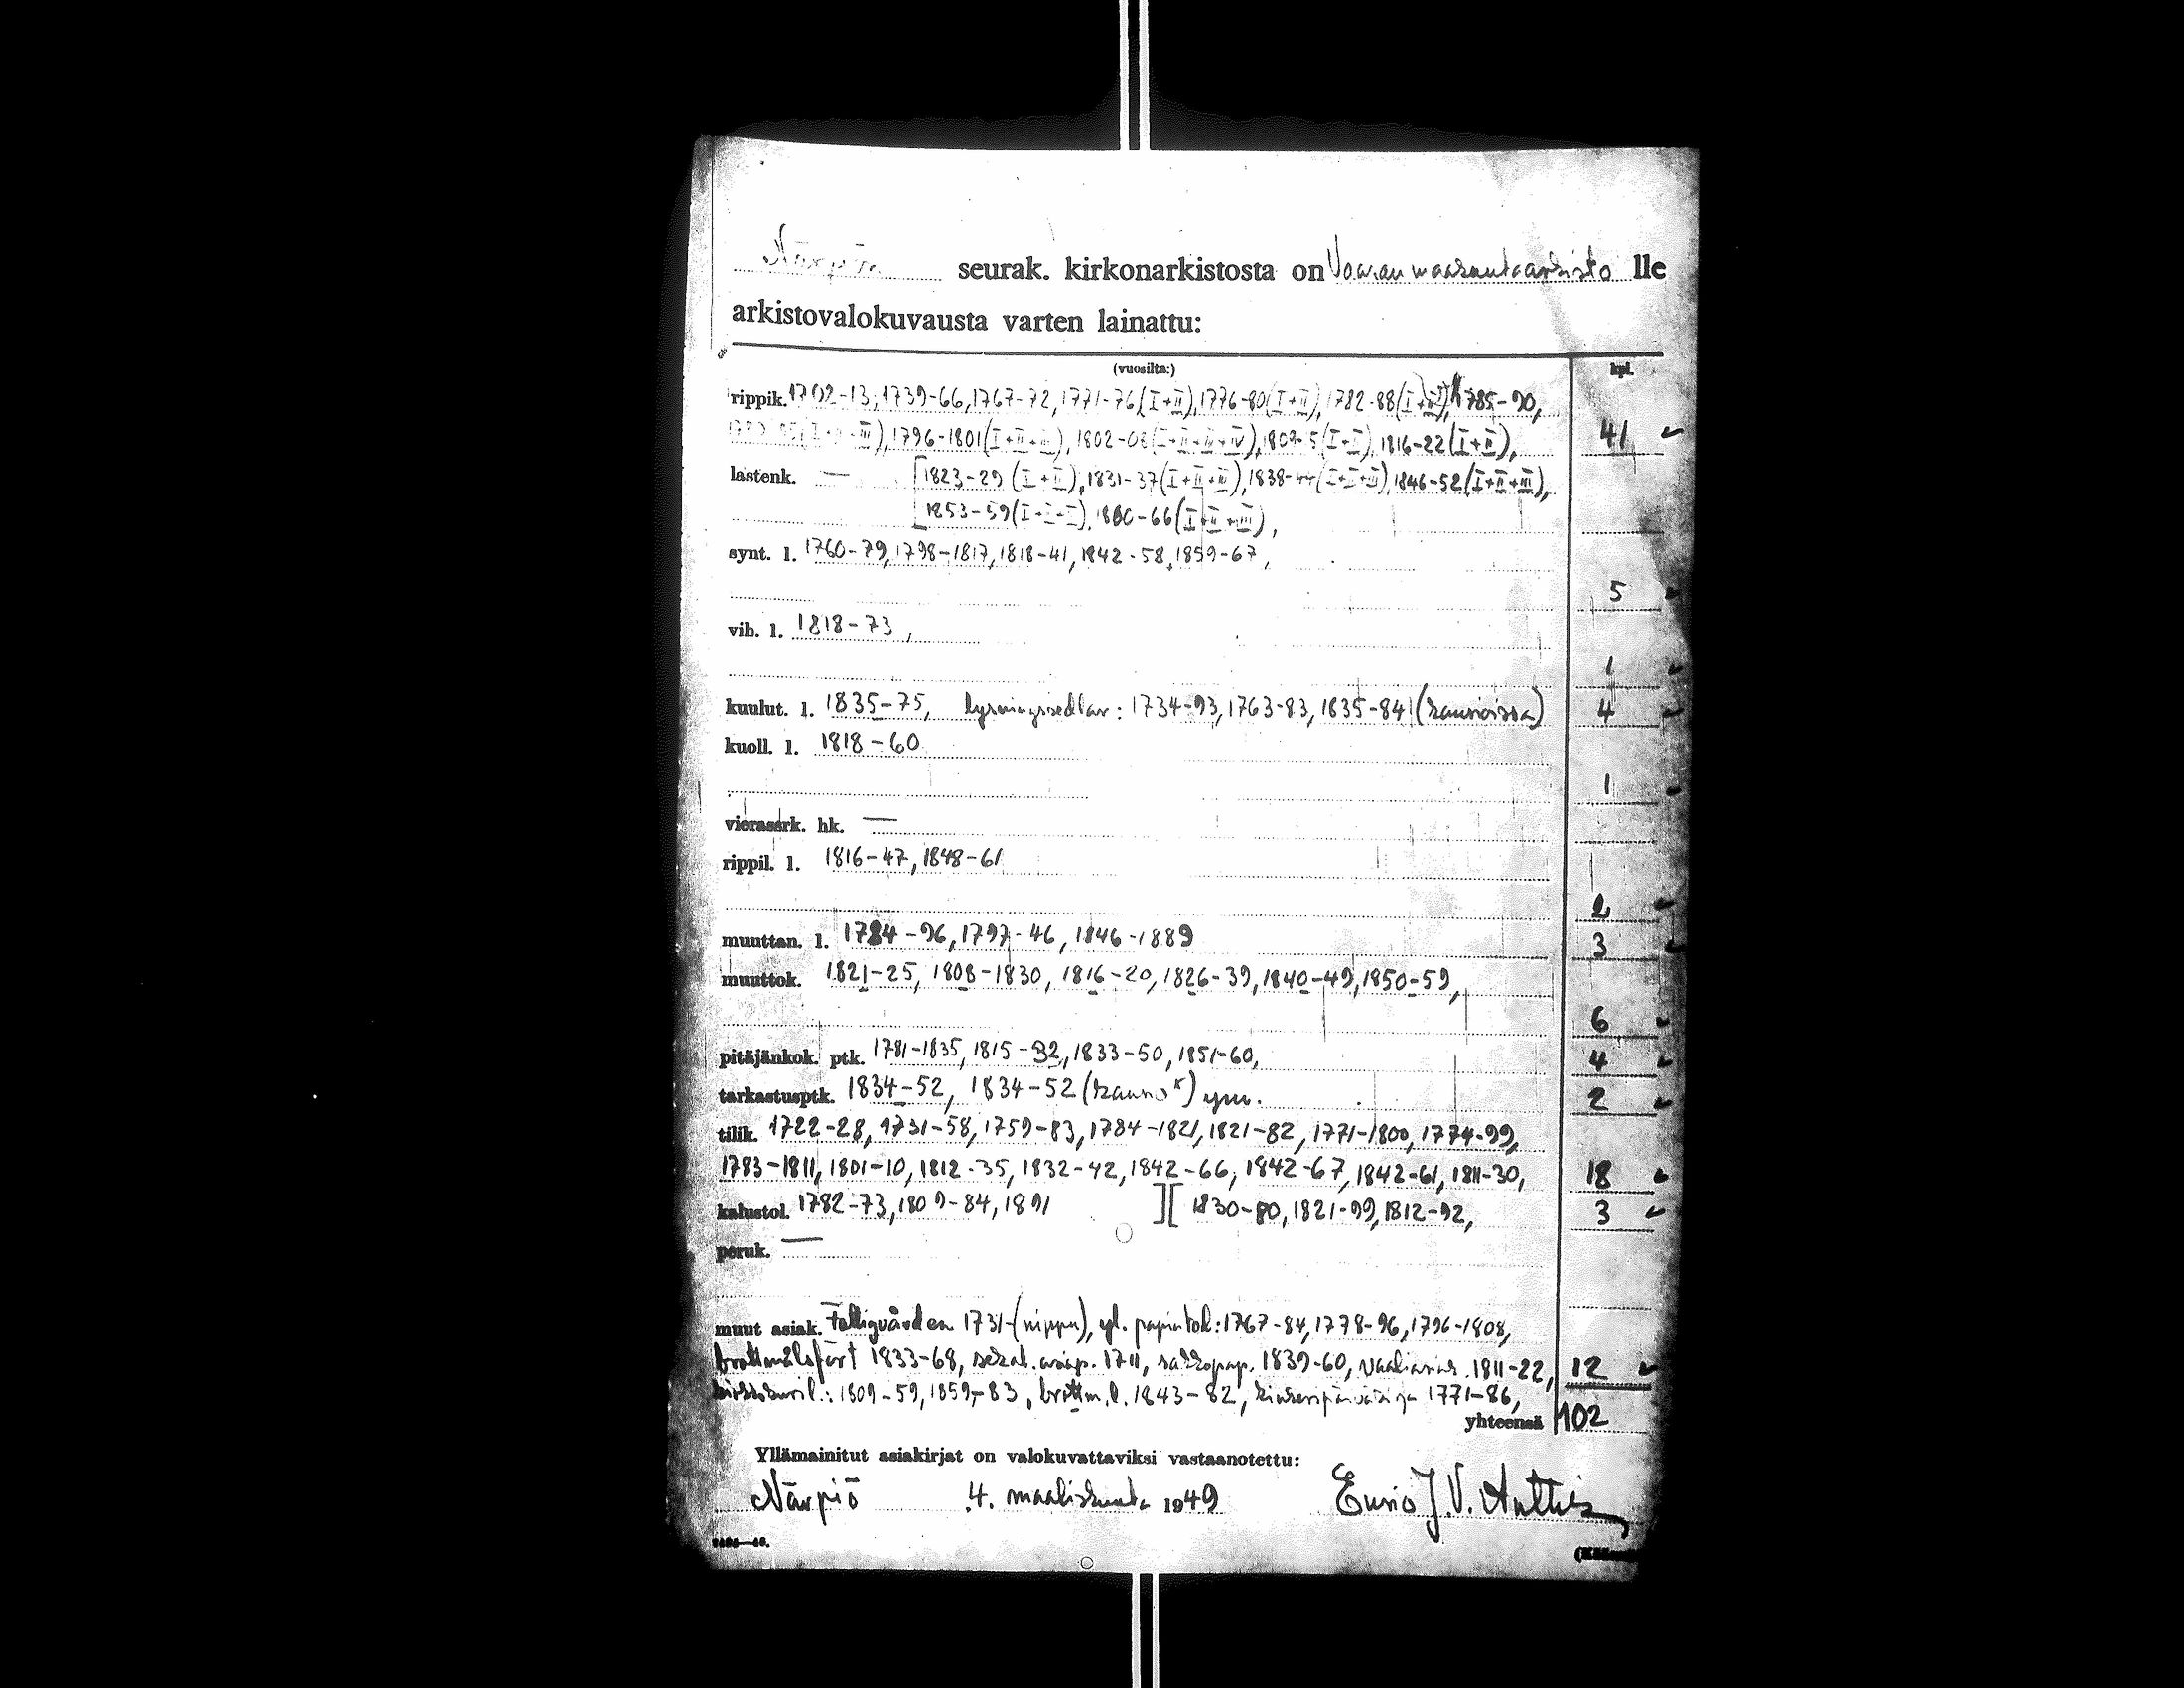 Närpiön seurak. kirkonarkistosta on Vaasan maakuntaarkisto lle
arkistovalokuvausta varten lainattu:
(vuosilta:) kpl.
rippik. 1702-13, 1739-66, 1767-72, 1771-76 (I+II), 1776-80 (I+II), 1782-88 (I+II), 1785-90,
1796-1801 (I+II+III), 1802-08 (I+II+III+IV), 1816-22 (I+II), 41
lastenk. — [1823-29 (I+II), 1831-37 (I+II+III), 1838-44 (I+II+III), 1846-52 (I+II+III),
1853-59 (I+II+III), 1860-66 (I+II+III),
synt. l. 1760-79, 1798-1817, 1818-41, 1842-58, 1859-67,
5
vih. l. 1818-73,
1
kuulut. l. 1835-75, lysningssedlar: 1734-93, 1763-83, 1835-84 (kansioissa) 4
kuoll. l. 1818-60
1
vierassrk. hk. —
rippil. l. 1816-47, 1848-61
2
muuttan. l. 1784-96, 1797-46, 1846-1889 3
muuttok. 1821-25, 1808-1830, 1816-20, 1826-39, 1840-49, 1850-59,
6
pitäjänkok. ptk. 1781-1835, 1815-32, 1833-50, 1851-60, 4
tarkastusptk. 1834-52, 1834-52 (kansio) ym. 2
tilik. 1722-28, 1731-58, 1759-83, 1784-1821, 1821-82, 1771-1800, 1774-99,
1783-1811, 1801-10, 1812-35, 1832-42, 1842-66, 1842-67, 1842-61, 1811-30, 18
kalustol. 1782-73, 1809-84, 1891 ][ 1830-80, 1821-99, 1812-92, 3
peruk. —
muut asiak. Fattigvården 1731-(nippu), yl. 1767-84, 1778-96, 1796-1808,
brottmålsfört 1833-68, sekal. asiap. 1711, sakkopap. 1839-60, vaaliasiak. 1811-22, 12
1809-59, 1859-83, brottm.l. 1843-82, 1771-86,
yhteensä 102
Yllämainitut asiakirjat on valokuvattaviksi vastaanotettu:
Närpiö 4. maaliskuuta 1949 J. V.